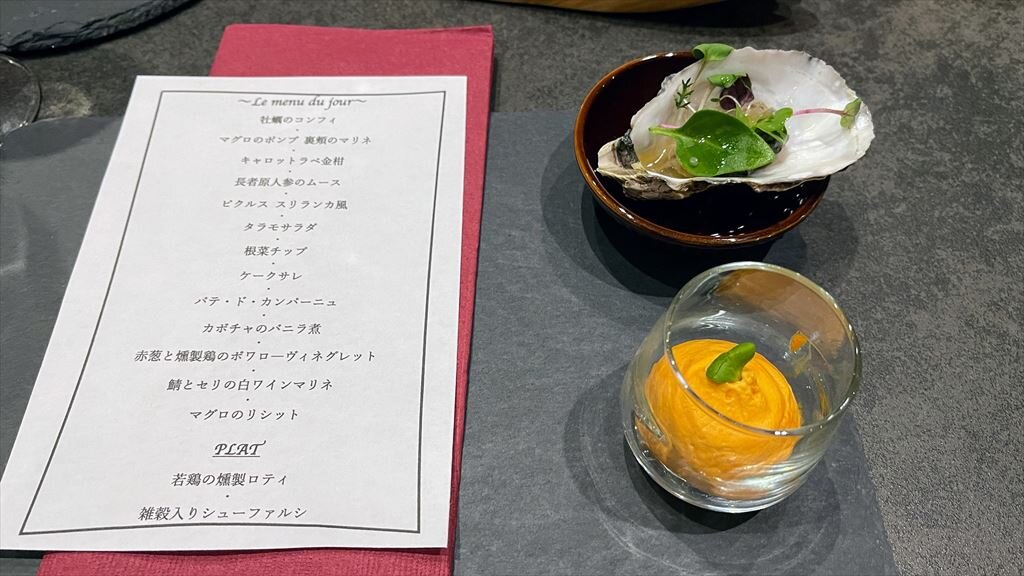 ～Le menu du jour～
牡蠣のコンフィ
・
マグロのポンプ 裏頬のマリネ
・
キャロットラペ金柑
・
長者原人参のムース
・
ピクルス スリランカ風
・
タラモサラダ
・
根菜チップ
・
ケークサレ
・
パテ・ド・カンパーニュ
・
カボチャのバニラ煮
・
赤葱と燻製鶏のポワローヴィネグレット
・
鯖とセリの白ワインマリネ
・
マグロのリシット
PLAT
若鶏の燻製ロティ
・
雑穀入りシューファルシ